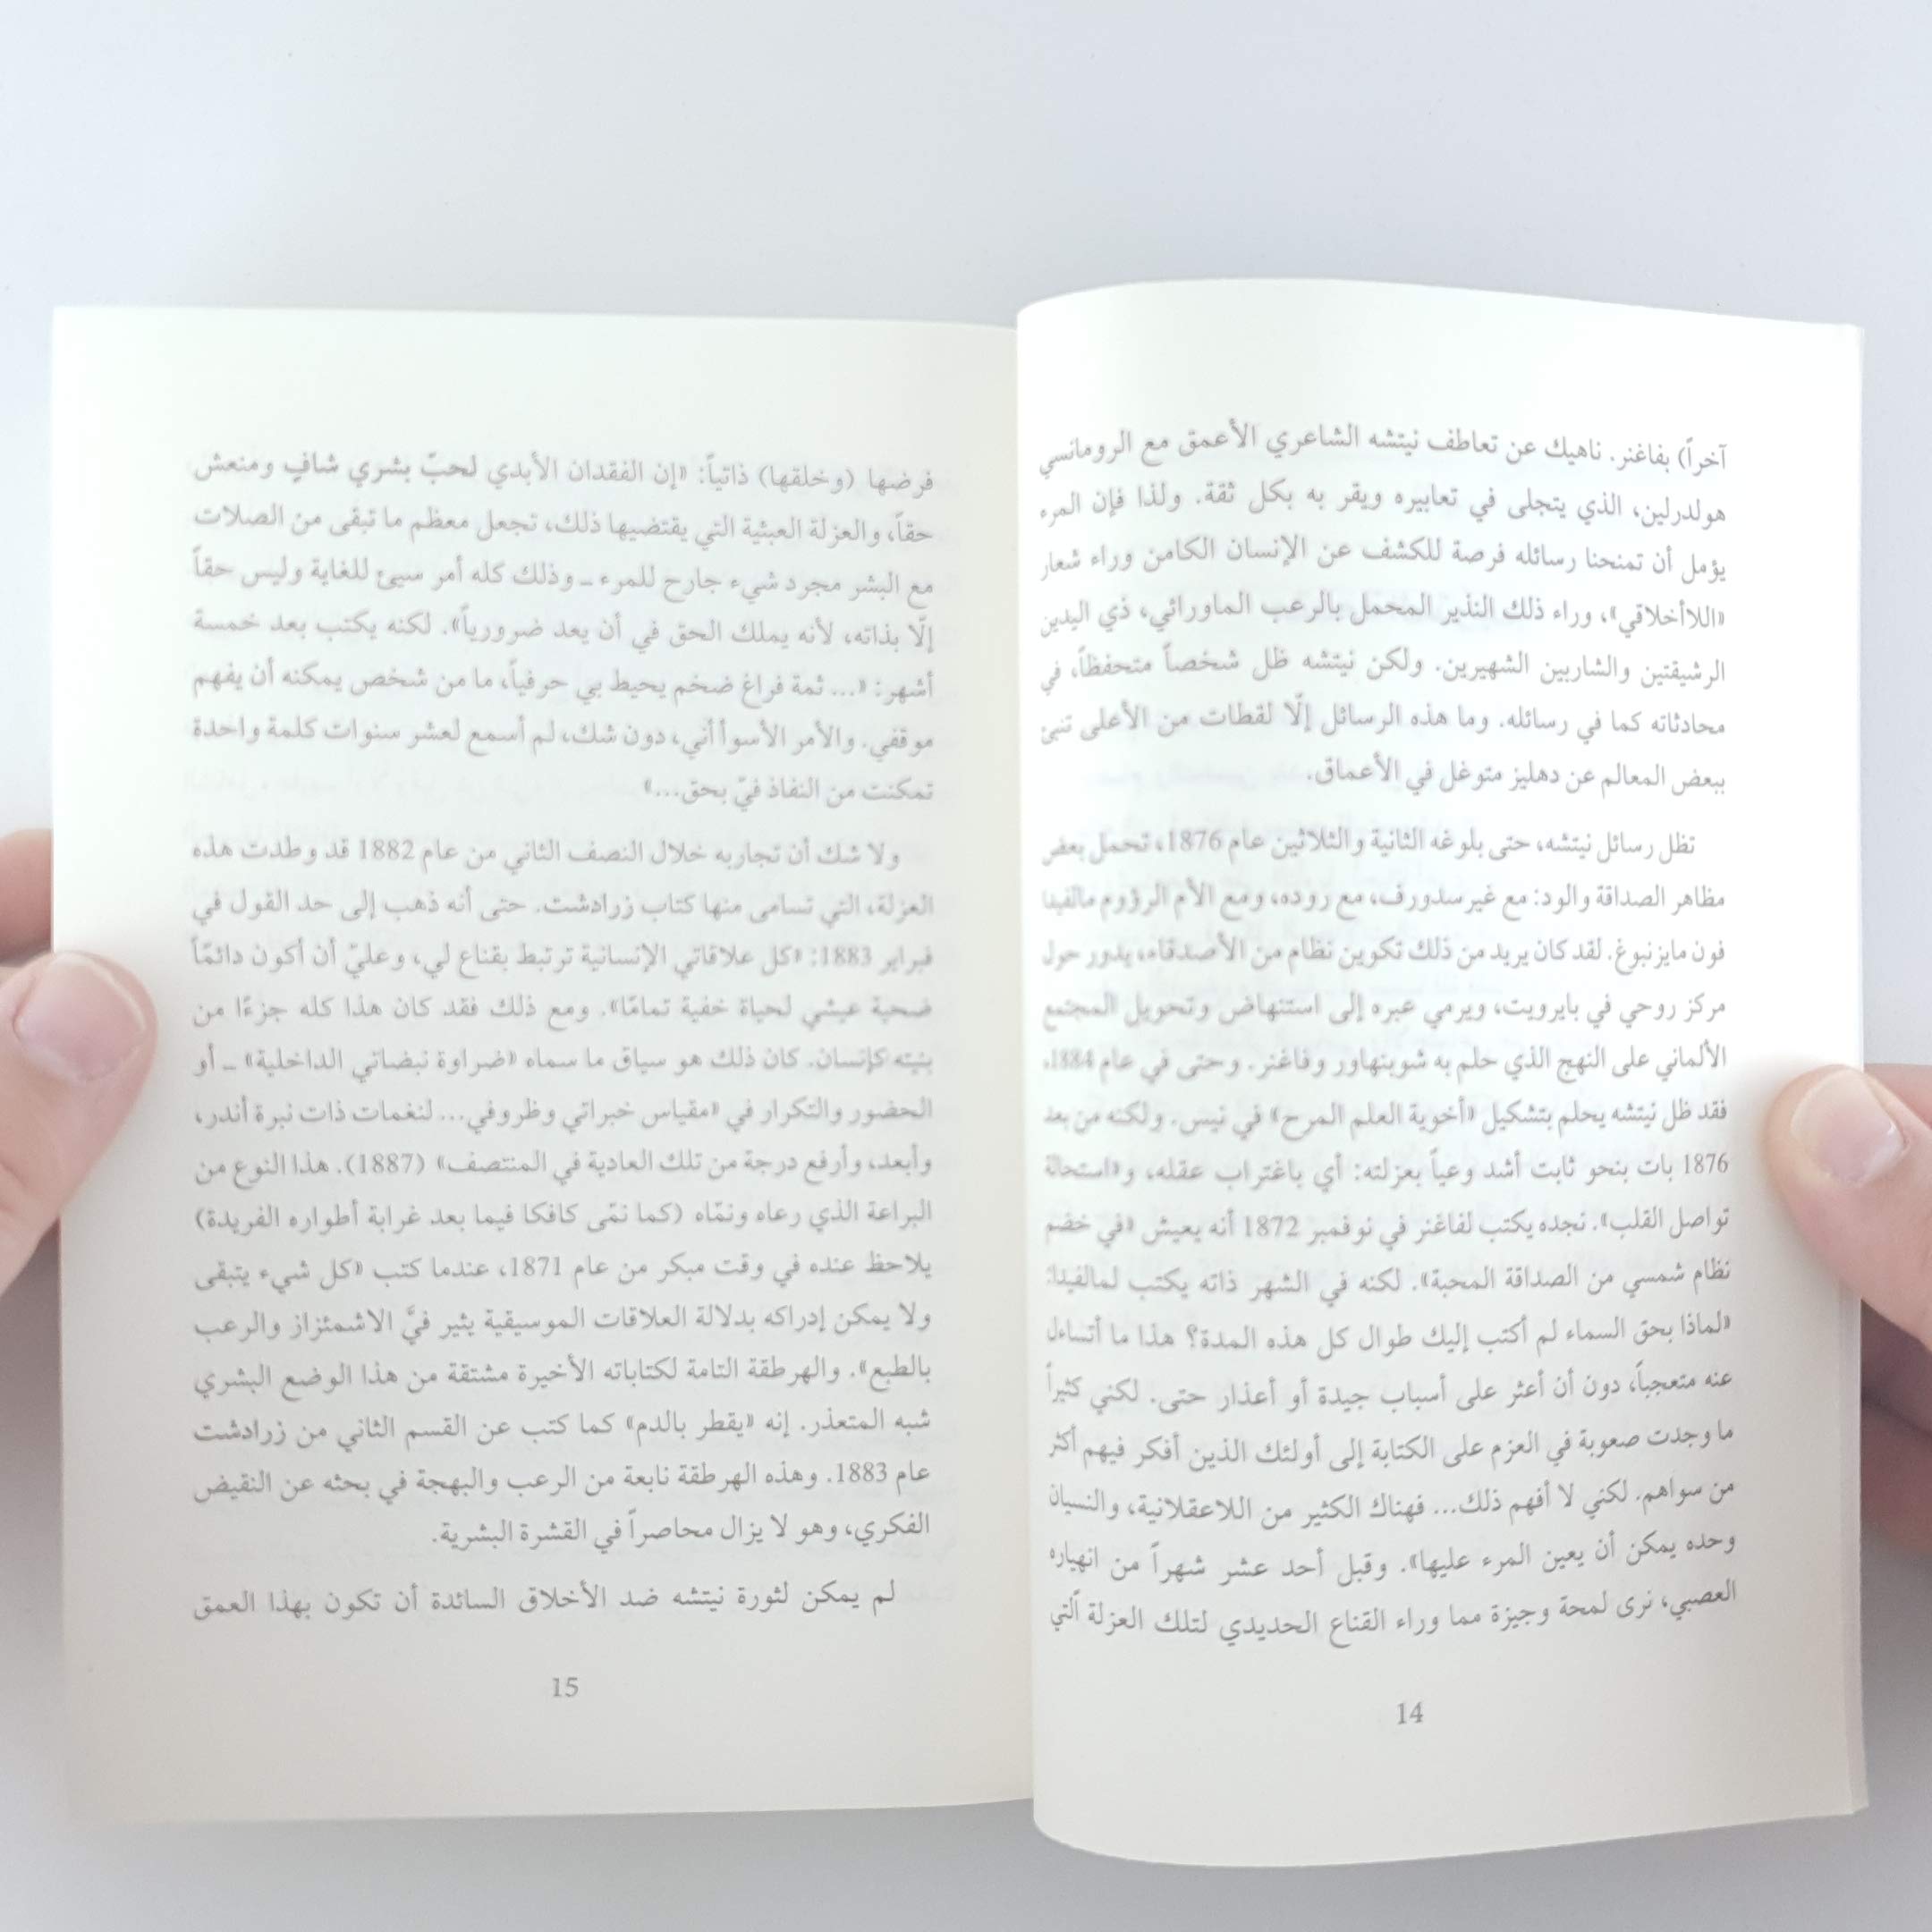 آخراً) بفاغنر. ناهيك عن تعاطف نيتشه الشاعري الأعمق مع الرومانسي
هولدرلين، الذي يتجلى في تعابيره ويقر به بكل ثقة. ولذا فإن المرء
يؤمل أن تمنحنا رسائله فرصة للكشف عن الإنسان الكامن وراء شعار
«اللاأخلاقي»، وراء ذلك النذير المحمل بالرعب الماورائي، ذي اليدين
الرشيقتين والشاربين الشهيرين. ولكن نيتشه ظل شخصاً متحفظاً، في
محادثاته كما في رسائله. وما هذه الرسائل إلّا لقطات من الأعلى تنبئ
ببعض المعالم عن دهليز متوغل في الأعماق.
تظل رسائل نيتشه، حتى بلوغه الثانية والثلاثين عام 1876، تحمل بعض
مظاهر الصداقة والود: مع غيرسدورف، مع روده، ومع الأم الرؤوم مالفيدا
فون مايزنبوغ. لقد كان يريد من ذلك تكوين نظام من الأصدقاء، يدور حول
مركز روحي في بايرويت، ويرمي عبره إلى استنهاض وتحويل المجتمع
الألماني على النهج الذي حلم به شوبنهاور وفاغنر. وحتى في عام 1884،
فقد ظل نيتشه يحلم بتشكيل «أخوية العلم المرح» في نيس. ولكنه من بعد
1876 بات بنحو ثابت أشد وعياً بعزلته: أي باغتراب عقله، و«استحالة
تواصل القلب». نجده يكتب لفاغنر في نوفمبر 1872 أنه يعيش «في خضم
نظام شمسي من الصداقة المحبة». لكنه في الشهر ذاته يكتب لمالفيدا:
«لماذا بحق السماء لم أكتب إليك طوال كل هذه المدة؟ هذا ما أتساءل
عنه متعجباً، دون أن أعثر على أسباب جيدة أو أعذار حتى. لكني كثيراً
ما وجدت صعوبة في العزم على الكتابة إلى أولئك الذين أفكر فيهم أكثر
من سواهم. لكني لا أفهم ذلك... فهناك الكثير من اللاعقلانية، والنسيان
وحده يمكن أن يعين المرء عليها». وقبل أحد عشر شهراً من انهياره
العصبي، نرى لمحة وجيزة مما وراء القناع الحديدي لتلك العزلة الّتي
14
فرضها (وخلقها) ذاتياً: «إن الفقدان الأبدي لحبّ بشري شافٍ ومنعش
حقاً، والعزلة العبثية التي يقتضيها ذلك، تجعل معظم ما تبقى من الصلات
مع البشر مجرد شيء جارح للمرء ـ وذلك كله أمر سيئ للغاية وليس حقاً
إلّا بذاته، لأنه يملك الحق في أن يعد ضرورياً». لكنه يكتب بعد خمسة
أشهر: «... ثمة فراغ ضخم يحيط بي حرفياً، ما من شخص يمكنه أن يفهم
موقفي. والأمر الأسوأ أني، دون شك، لم أسمع لعشر سنوات كلمة واحدة
تمكنت من النفاذ فيّ بحق...»
ولا شك أن تجاربه خلال النصف الثاني من عام 1882 قد وطدت هذه
العزلة، التي تسامى منها كتاب زرادشت. حتى أنه ذهب إلى حد القول في
فبراير 1883: «كل علاقاتي الإنسانية ترتبط بقناع لي، وعليّ أن أكون دائمًا
ضحية عيشي لحياة خفية تمامًا». ومع ذلك فقد كان هذا كله جزءًا من
بنيته كإنسان. كان ذلك هو سياق ما سماه «ضراوة نبضاتي الداخلية» ـ أو
الحضور والتكرار في «مقياس خبراتي وظروفي... لنغمات ذات نبرة أندر،
وأبعد، وأرفع درجة من تلك العادية في المنتصف» (1887). هذا النوع من
البراعة الذي رعاه ونمّاه (كما نمّى كافكا فيما بعد غرابة أطواره الفريدة)
يلاحظ عنده في وقت مبكر من عام 1871، عندما كتب «كل شيء يتبقى
ولا يمكن إدراكه بدلالة العلاقات الموسيقية يثير فيَّ الاشمئزاز والرعب
بالطبع». والهرطقة التامة لكتاباته الأخيرة مشتقة من هذا الوضع البشري
شبه المتعذر. إنه «يقطر بالدم» كما كتب عن القسم الثاني من زرادشت
عام 1883. وهذه الهرطقة نابعة من الرعب والبهجة في بحثه عن النقيض
الفكري، وهو لا يزال محاصراً في القشرة البشرية.
لم يمكن لثورة نيتشه ضد الأخلاق السائدة أن تكون بهذا العمق
15